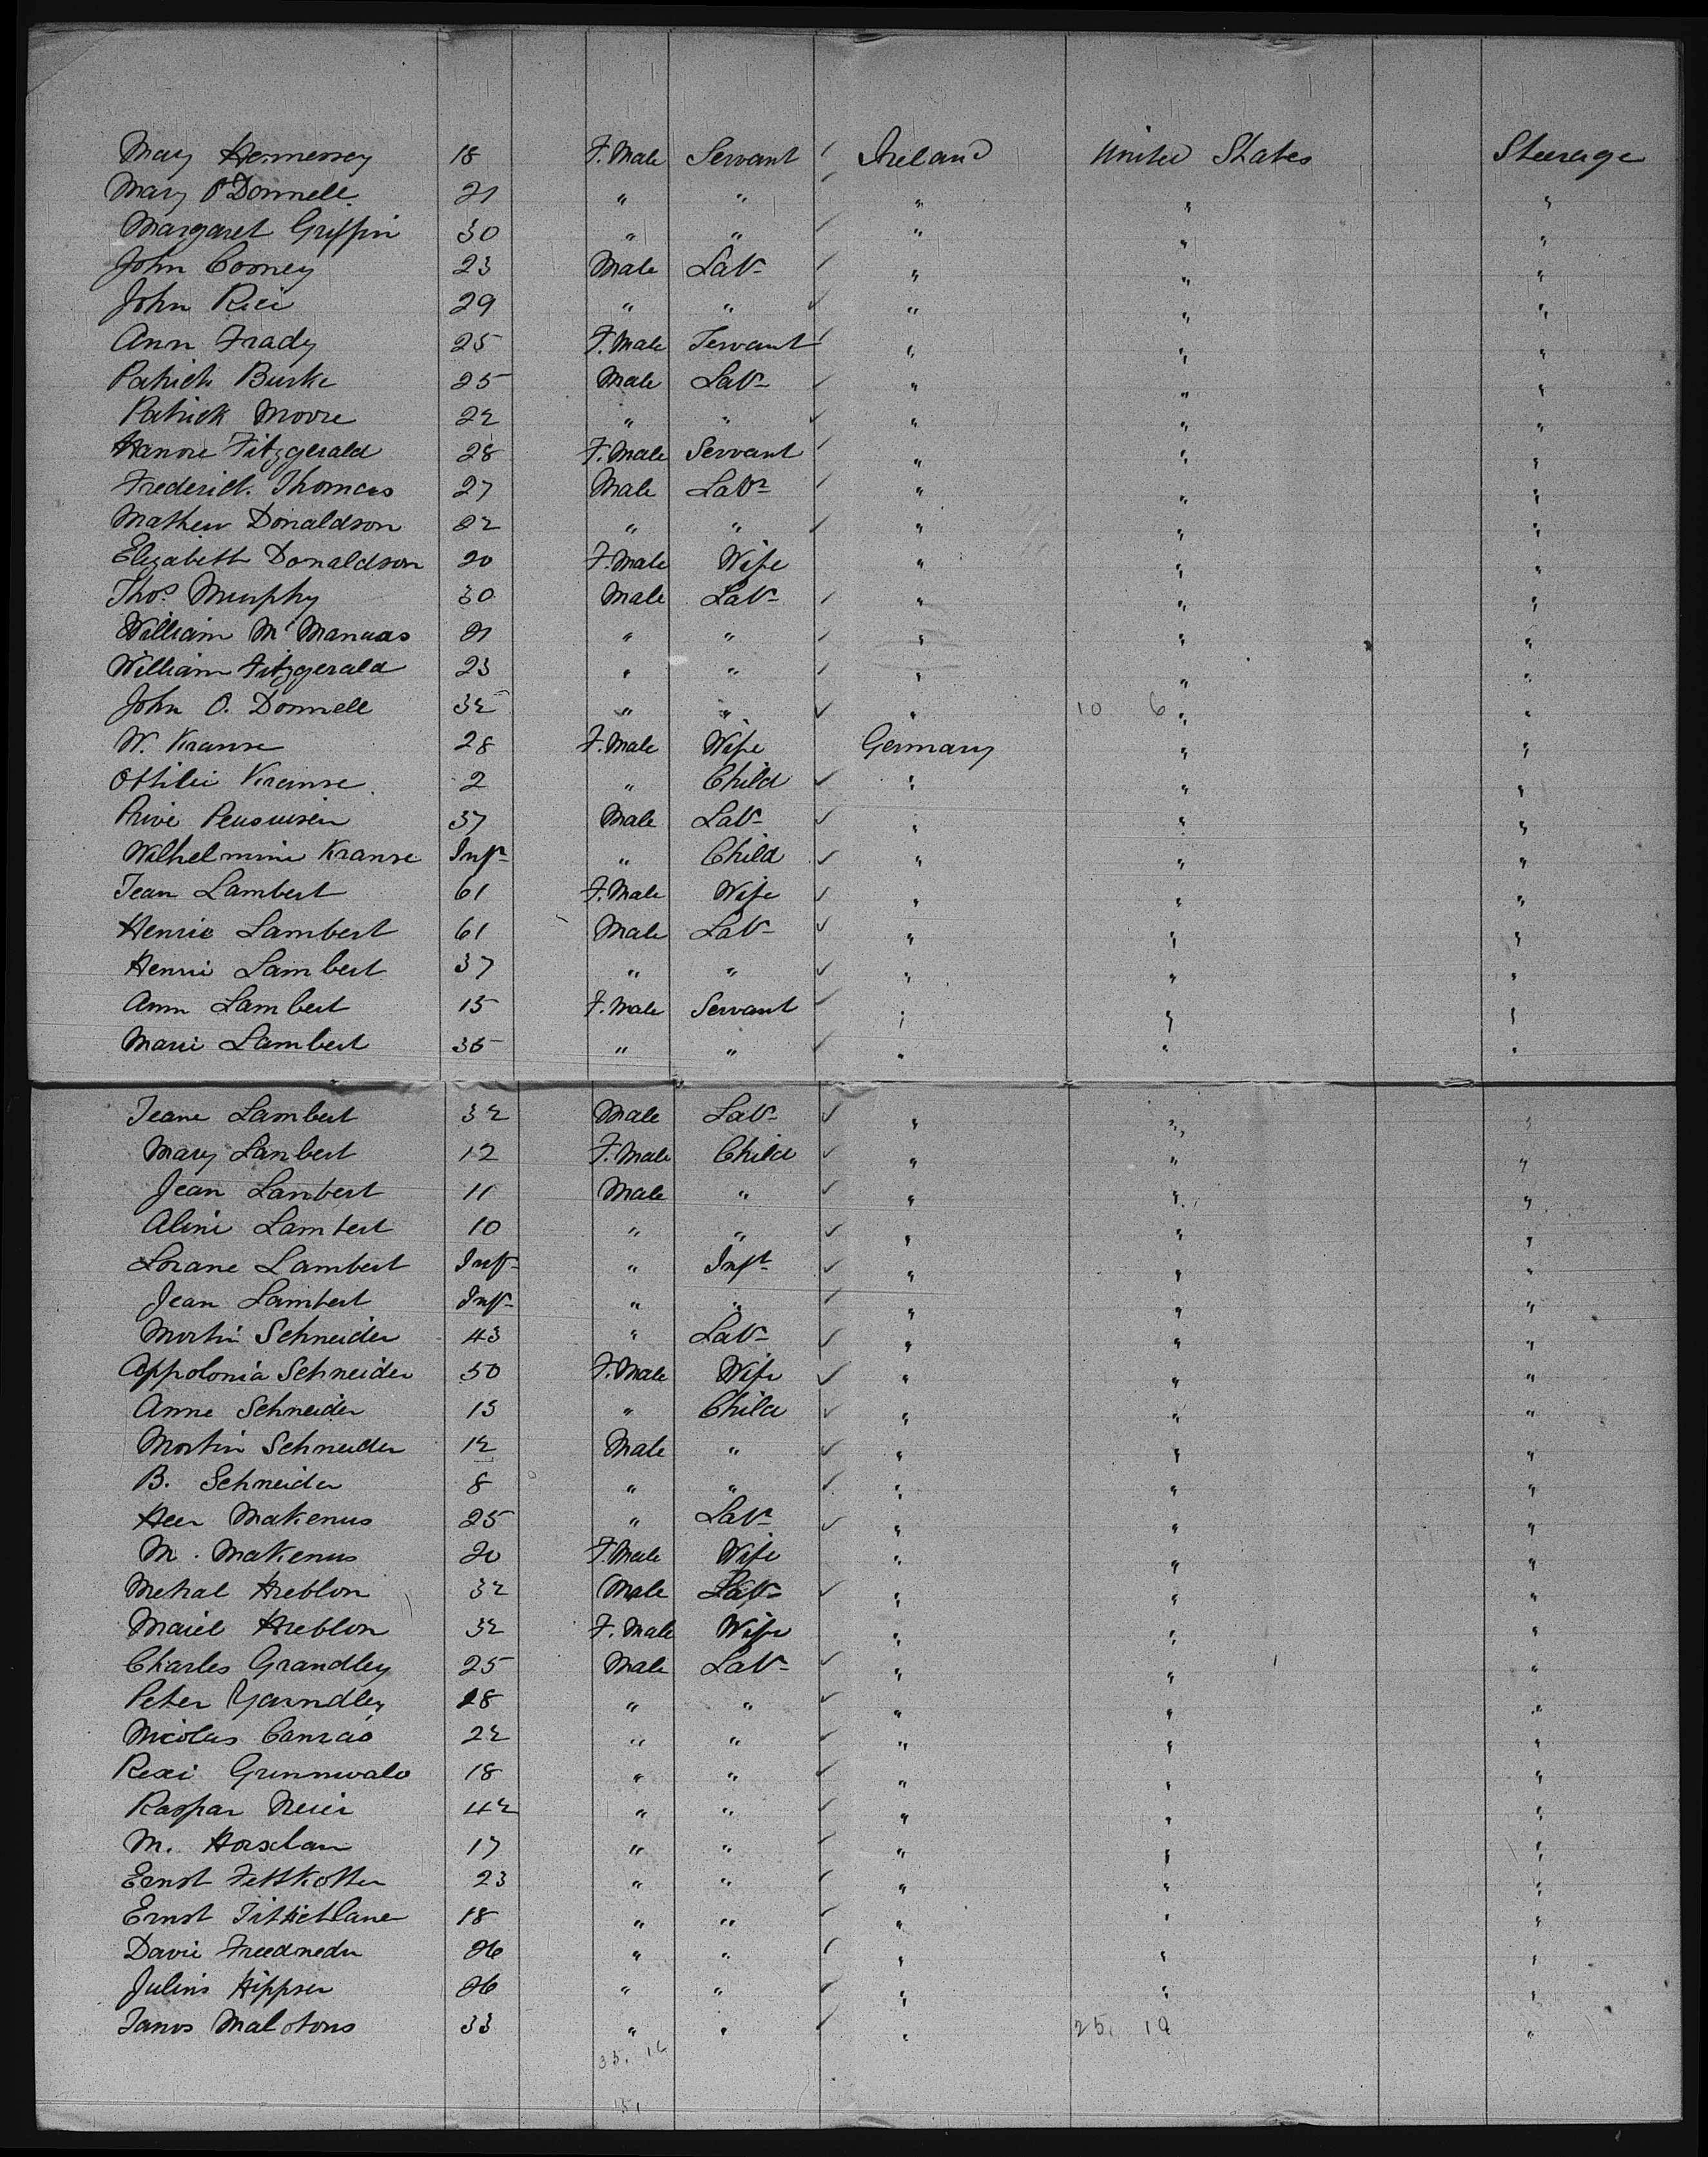 Mary Hennessey 18 F. Male Servant Ireland United States Steerage
Mary O'Donnell 21 " " " " "
Margaret Griffin 30 " " " " "
John Cooney 23 Male Labr " " "
John Rice 29 " " " " "
Ann Frady 25 F. Male Servant " " "
Patrick Burke 25 Male Labr " " "
Patrick Moore 22 " " " " "
Hanore Fitzgerald 28 F. Male Servant " " "
Frederick Thomas 27 Male Labr " " "
Mathew Donaldson 22 " " " " "
Elizabeth Donaldson 20 F. Male Wife " " "
Thos. Murphy 30 Male Labr " " "
William McManaas 21 " " " " "
William Fitzgerald 23 " " " " "
John O. Donnell 32 " " " 10 6 " "
W. Krause 28 F. Male Wife Germany " "
Ottilie Krause 2 " Child " " "
37 Male Labr " " "
Wilhelmine Krause Inft " Child " " "
Jean Lambert 61 F. Male Wife " " "
Henrie Lambert 61 Male Labr " " "
Henri Lambert 37 " " " " "
Ann Lambert 15 F. Male Servant " " "
Marie Lambert 35 " " " " "
Jeane Lambert 32 Male Labr " " "
Mary Lambert 12 F. Male Child " " "
Jean Lambert 11 Male " " " "
Aline Lambert 10 " " " " "
Lorane Lambert Inft " Inft " " "
Jean Lambert Inft " " " " "
Martin Schneider 43 " Labr " " "
Appolonia Schneider 50 F. Male Wife " " "
Anne Schneider 15 " Child " " "
Martin Schneider 12 Male " " " "
B. Schneider 8 " " " " "
Heer Makenus 25 " Labr " " "
M. Makenus 20 F. Male Wife " " "
Mehal Heblon 32 Male Labr " " "
Mariel Heblon 32 F. Male Wife " " "
Charles Grandley 25 Male Labr " " "
Peter Yarndley 28 " " " " "
Nicolas Conrad 22 " " " " "
Rexi Grunnwald 18 " " " " "
Kaspar Meier 42 " " " " "
M. Horslan 17 " " " " "
Ernst Fettkotter 23 " " " " "
Ernst 18 " " " " "
David Freedneder 26 " " " " "
Julius Hippser 26 " " " " "
Janos Malotons 33 " " " 25. 19 "
35. 16
151